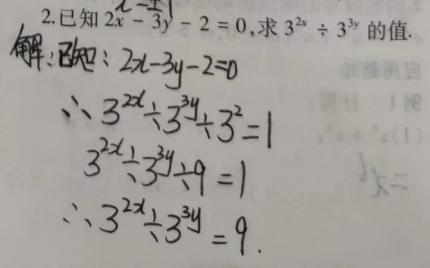 2.已知 2x - 3y - 2 = 0,求 3²ˣ ÷ 3³ʸ 的值.
解:已知: 2x-3y-2=0
∴ 3²ˣ÷3³ʸ÷3²=1
3²ˣ÷3³ʸ÷9=1
∴ 3²ˣ÷3³ʸ=9.